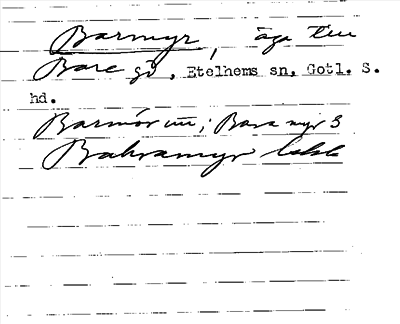 Barmyr, äga till
Bare gd, Etelhems sn, Gotl. S.
hd.
Barmör m; Bara myr 3
Bahramyr